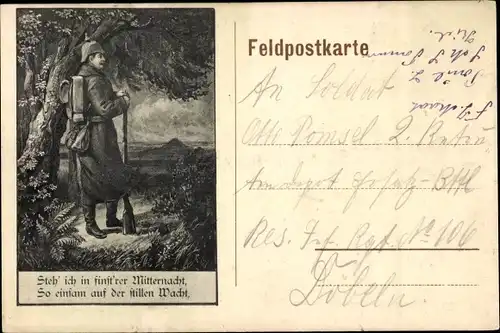 Feldpostkarte
An Soldat
Otto Pomsel 2. Rekru
Ersatz-Batl
Res. Inf. Rgt. No 106
Döbeln.
Steh' ich in finst'rer Mitternacht,
So einsam auf der stillen Wacht,